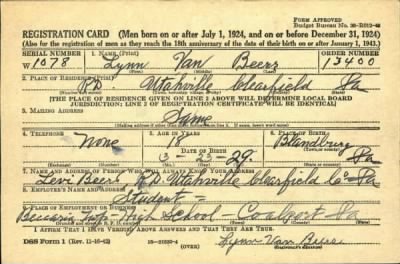 FORM APPROVED
Budget Bureau No. 33-R012-42
REGISTRATION CARD (Men born on or after July 1, 1924, and on or before December 31, 1924)
(Also for the registration of men as they reach the 18th anniversary of the date of their birth on or after January 1, 1943.)
SERIAL NUMBER 1. NAME (Print) ORDER NUMBER
W 1078 Lynn Van Beers 13400
(First) (Middle) (Last)
2. PLACE OF RESIDENCE (Print)
RD Utahville Clearfield Pa
[THE PLACE OF RESIDENCE GIVEN ON LINE 2 ABOVE WILL DETERMINE LOCAL BOARD
JURISDICTION; LINE 2 OF REGISTRATION CERTIFICATE WILL BE IDENTICAL]
3. MAILING ADDRESS
Same
4. TELEPHONE 5. AGE IN YEARS 6. PLACE OF BIRTH
None 18 Blandburg
DATE OF BIRTH
3-23-29 Pa
(Exchange) (Number) (Mo.) (Day) (Yr.) (State or country)
7. NAME AND ADDRESS OF PERSON WHO WILL ALWAYS KNOW YOUR ADDRESS
Levi Beers RD Utahville Clearfield Co Pa
Student
Beccaria Twp High School - Coalport Pa
I AFFIRM THAT I HAVE VERIFIED ABOVE ANSWERS AND THAT THEY ARE TRUE.
DSS Form 1 (Rev. 11-16-42) (OVER) Lynn Van Beers